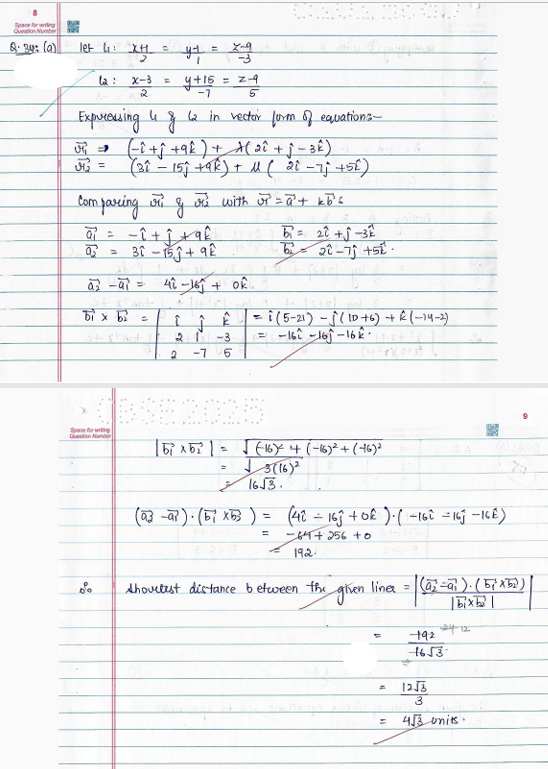 8
Space for writing
Question Number
Q. 34: (a) let l₁: x+1/2 = y-1/1 = z-9/-3
l₂: x-3/2 = y+15/-7 = z-9/5
Expressing l₁ & l₂ in vector form of equations:-
r₁⃗ = (-î+ĵ+9k̂) + λ(2î+ĵ-3k̂)
r₂⃗ = (3î-15ĵ+9k̂) + μ(2î-7ĵ+5k̂)
Comparing r₁⃗ & r₂⃗ with r⃗ = a⃗ + kb⃗ :
a₁⃗ = -î+ĵ+9k̂ b₁⃗ = 2î+ĵ-3k̂
a₂⃗ = 3î-15ĵ+9k̂ b₂⃗ = 2î-7ĵ+5k̂.
a₂⃗-a₁⃗ = 4î-16ĵ+0k̂
b₁⃗ × b₂⃗ = | î ĵ k̂ | = î(5-21) -ĵ(10+6) + k̂(-14-2)
| 2 1 -3 | = -16î-16ĵ-16k̂.
| 2 -7 5 |
CBSE 2025
9
Space for writing
Question Number
|b₁⃗ × b₂⃗| = √(-16)² + (-16)² + (-16)²
= √3(16)²
= 16√3.
(a₂⃗-a₁⃗)·(b₁⃗×b₂⃗) = (4î-16ĵ+0k̂)·(-16î-16ĵ-16k̂)
= -64+256+0
= 192.
∴ Shourtest distance between the given lines = |(a₂⃗-a₁⃗)·(b₁⃗×b₂⃗)/|b₁⃗×b₂⃗||
= 192/16√3 24 12
= 12√3/3
= 4√3 units.